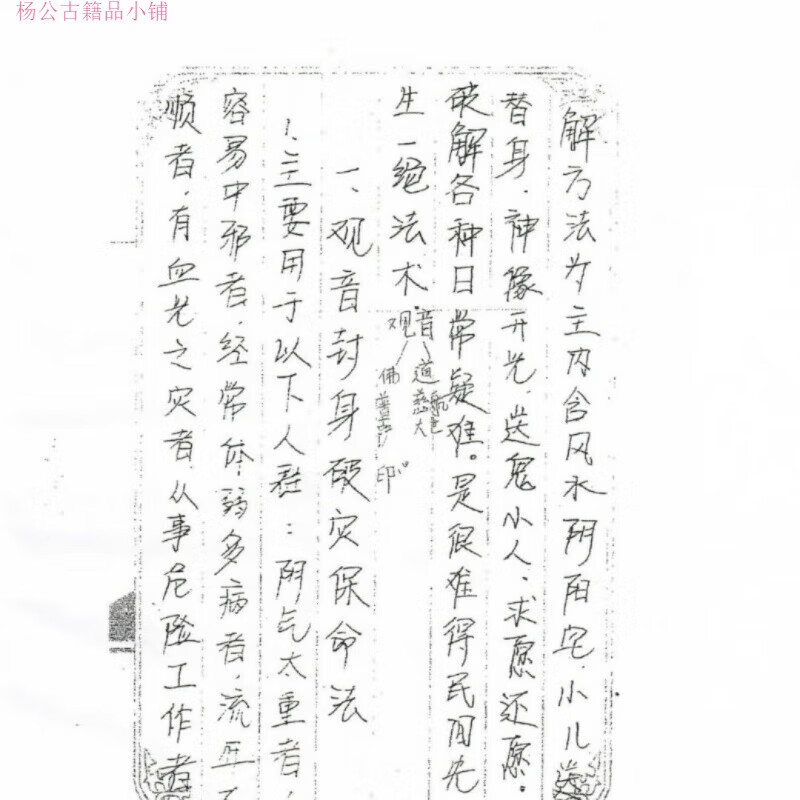 杨公古籍品小铺
解方法为主内含风水阴阳宅,小儿
替身、神像开光、送鬼小人、求愿还愿.
破解各种日常疑难。是很难得民间先
生一绝法术.
观音
道
慈航
大
佛
印
一、观音封身破灾保命法
1、主要用于以下人群:阴气太重者,
容易中邪者,经常体弱多病者,流年不
顺者,有血光之灾者,从事危险工作者